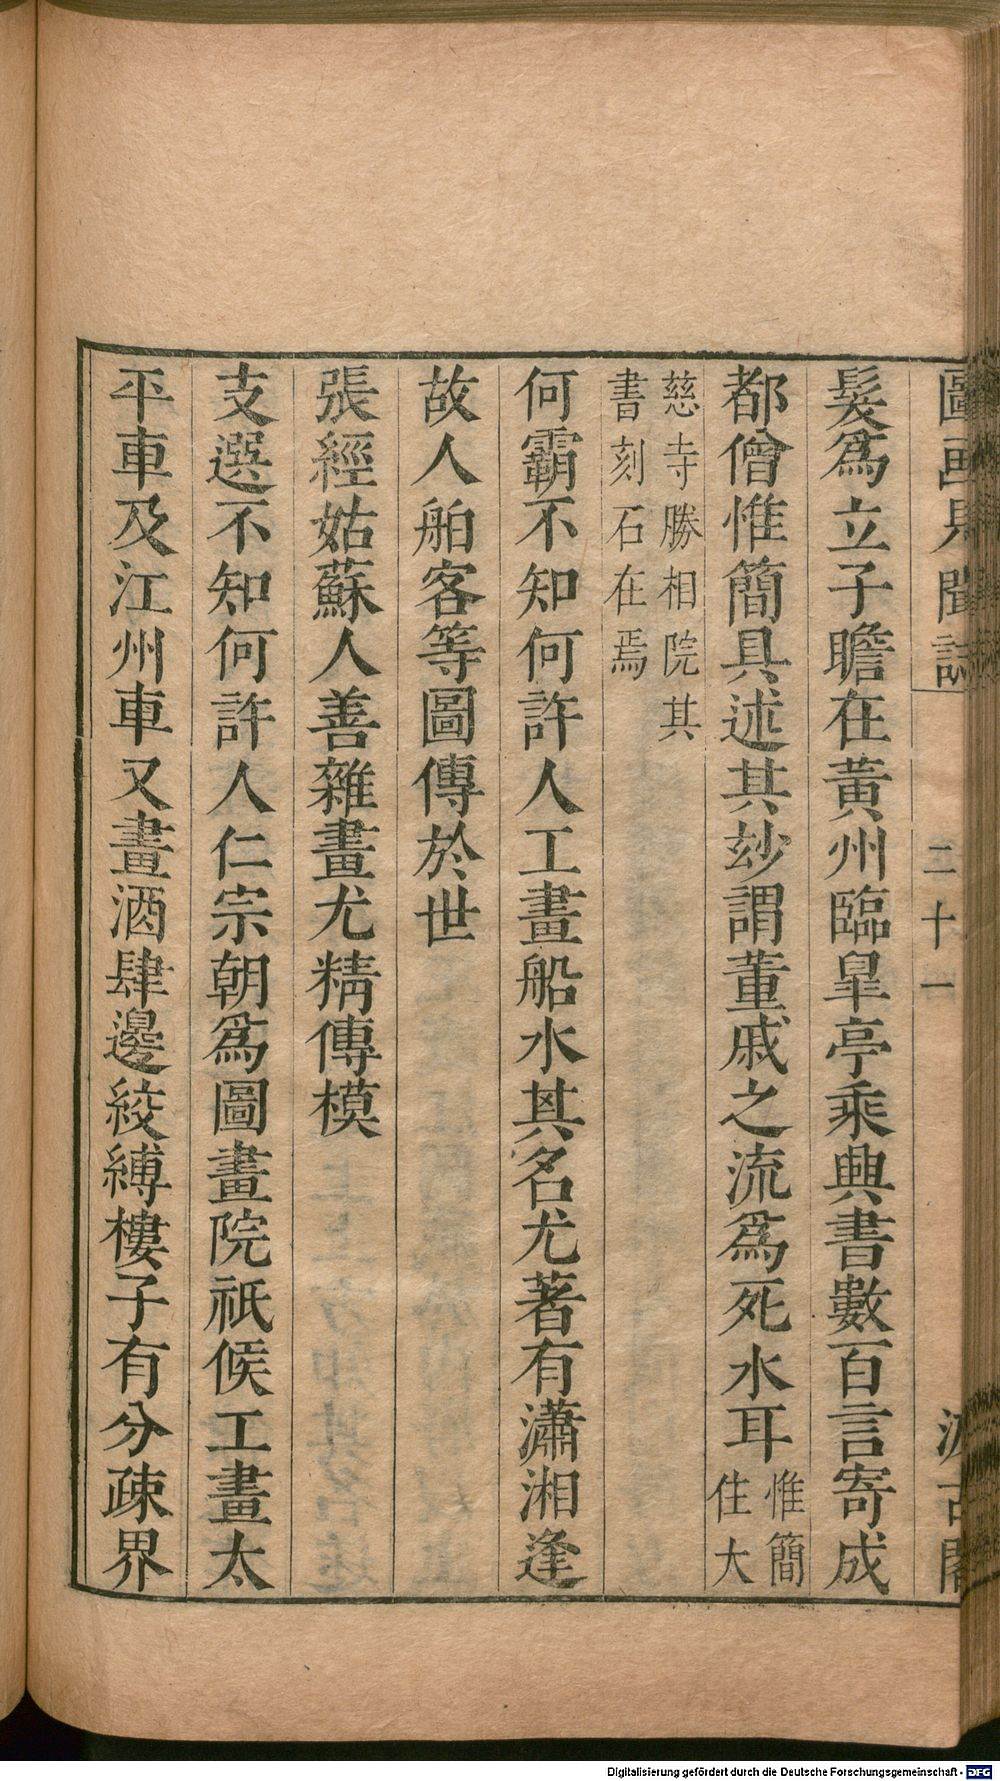 圖畫見聞誌 二十一 汲古閣
髮爲立子瞻在黃州臨臯亭乘興書數百言寄成
都僧惟簡具述其玅謂董戚之流爲死水耳惟簡住大
慈寺勝相院其書刻石在焉
何霸不知何許人工畫船水其名尤著有瀟湘逢
故人舶客等圖傳於世
張經姑蘇人善雜畫尤精傳模
支選不知何許人仁宗朝爲圖畫院祇候工畫太
平車及江州車又畫酒肆邊絞縛樓子有分疎界
Digitalisierung gefördert durch die Deutsche Forschungsgemeinschaft - DFG